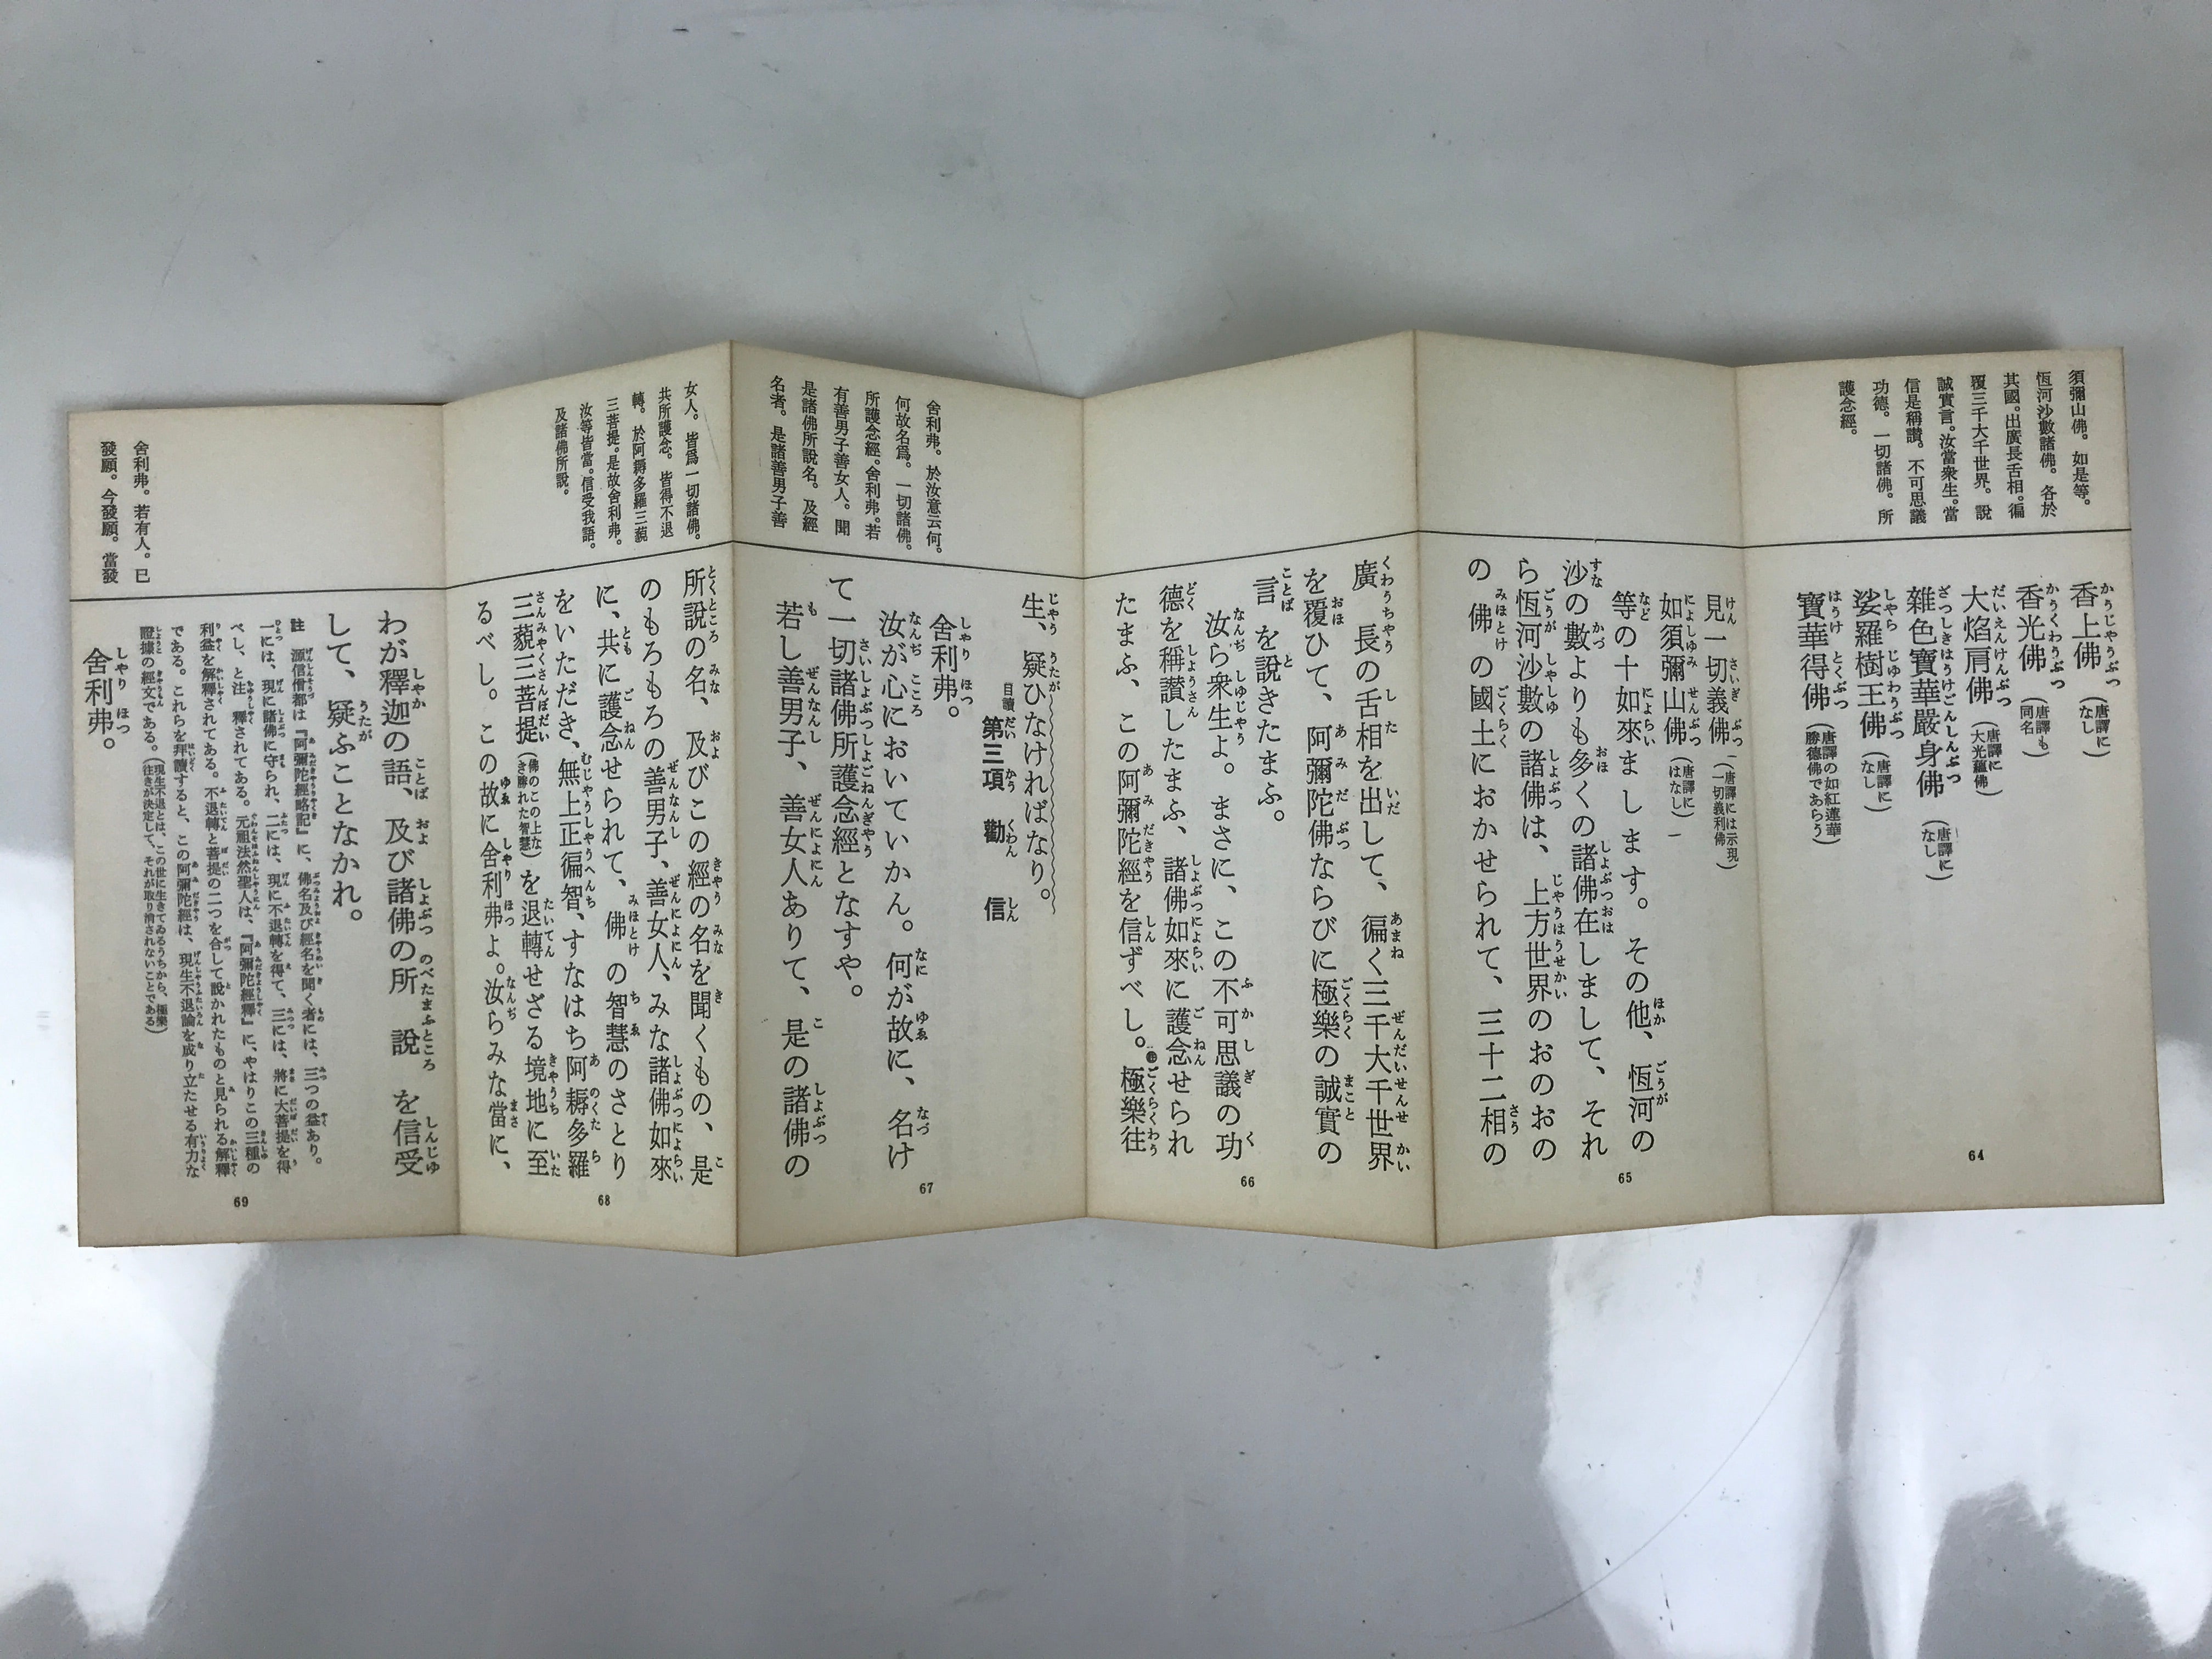 須彌山佛。如是等。
恆河沙數諸佛。各於
其國。出廣長舌相。徧
覆三千大千世界。說
誠實言。汝當衆生。當
信是稱讚。不可思議
功德。一切諸佛。所
護念經。
香上佛(唐譯になし)
香光佛(唐譯も同名)
大焰肩佛(唐譯に大光蘊佛)
雜色寶華嚴身佛(唐譯になし)
娑羅樹王佛(唐譯になし)
寶華得佛(唐譯の如紅蓮華勝德佛であらう)
64
見一切義佛(唐譯には示現一切義利佛)
如須彌山佛(唐譯にはなし)
等の十如來まします。その他、恆河の
沙の數よりも多くの諸佛在しまして、それ
ら恆河沙數の諸佛は、上方世界のおのおの
の佛の國土におかせられて、三十二相の
65
廣長の舌相を出して、徧く三千大千世界
を覆ひて、阿彌陀佛ならびに極樂の誠實の
言を說きたまふ。
汝ら衆生よ。まさに、この不可思議の功
德を稱讚したまふ、諸佛如來に護念せられ
たまふ、この阿彌陀經を信ずべし。極樂往
66
舍利弗。於汝意云何。
何故名爲。一切諸佛。
所護念經。舍利弗。若
有善男子善女人。聞
是諸佛所說名。及經
名者。是諸善男子善
生、疑ひなければなり。
目讀 第三項 勸信
舍利弗。
汝が心においていかん。何が故に、名け
て一切諸佛所護念經となすや。
若し善男子、善女人ありて、是の諸佛の
67
女人。皆爲一切諸佛。
共所護念。皆得不退
轉。於阿耨多羅三藐
三菩提。是故舍利弗。
汝等皆當。信受我語。
及諸佛所說。
所說の名、及びこの經の名を聞くもの、是
のもろもろの善男子、善女人、みな諸佛如來
に、共に護念せられて、佛の智慧のさとり
をいただき、無上正徧智、すなはち阿耨多羅
三藐三菩提(佛のこの上なき勝れた智慧)を退轉せざる境地に至
るべし。この故に舍利弗よ。汝らみな當に、
68
舍利弗。若有人。已
發願。今發願。當發
わが釋迦の語、及び諸佛の所說を信受
して、疑ふことなかれ。
註 源信僧都は『阿彌陀經略記』に、佛名及び經名を聞く者には、三つの益あり。
一には、現に諸佛に守られ、二には、現に不退轉を得て、三には、將に大菩提を得
べし、と注釋されてある。元祖法然聖人は、『阿彌陀經釋』に、やはりこの三種の
利益を解釋されてある。不退轉と菩提の二つを合して說かれたものと見られる解釋
である。これらを拜讀すると、この阿彌陀經は、現生不退論を成り立たせる有力な
證據の經文である。(現生不退とは、この世に生きてゐるうちから、極樂往きが決定して、それが取り消されないことである)
舍利弗。
69